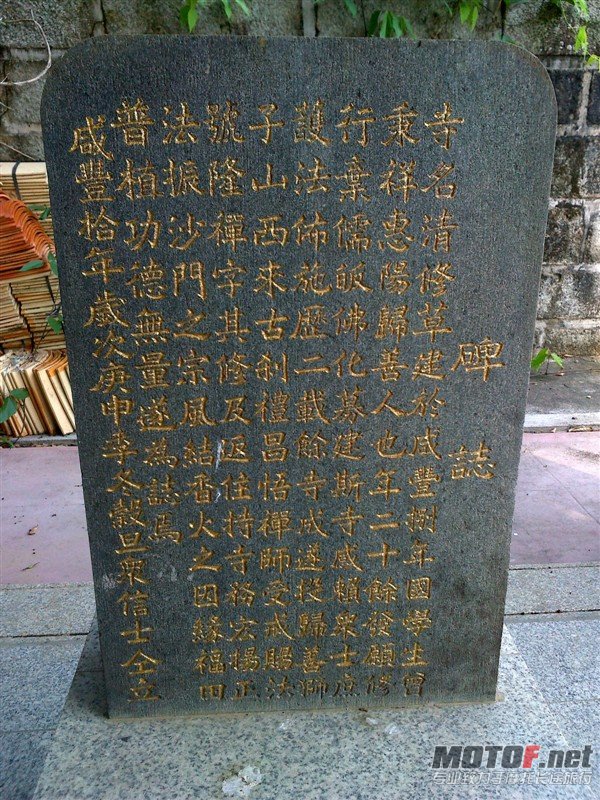 碑誌
寺名清修草建於咸豐捌年國學生曾
秉祥惠陽歸善人也年二十餘發願修
行棄儒皈佛化募建斯寺咸賴衆士庶
護法佈施歷二載餘寺成遂投歸善師
子山西來古刹禮昌悟禪師受戒賜法
號隆禪字其修及返住持寺務宏揚正
法振沙門之宗風結香火之因緣福田
普植功德無量遂為誌焉
咸豐拾年歲次庚申季冬穀旦衆信士仝立
MOTOF.net
专业致力于摩托长途旅行